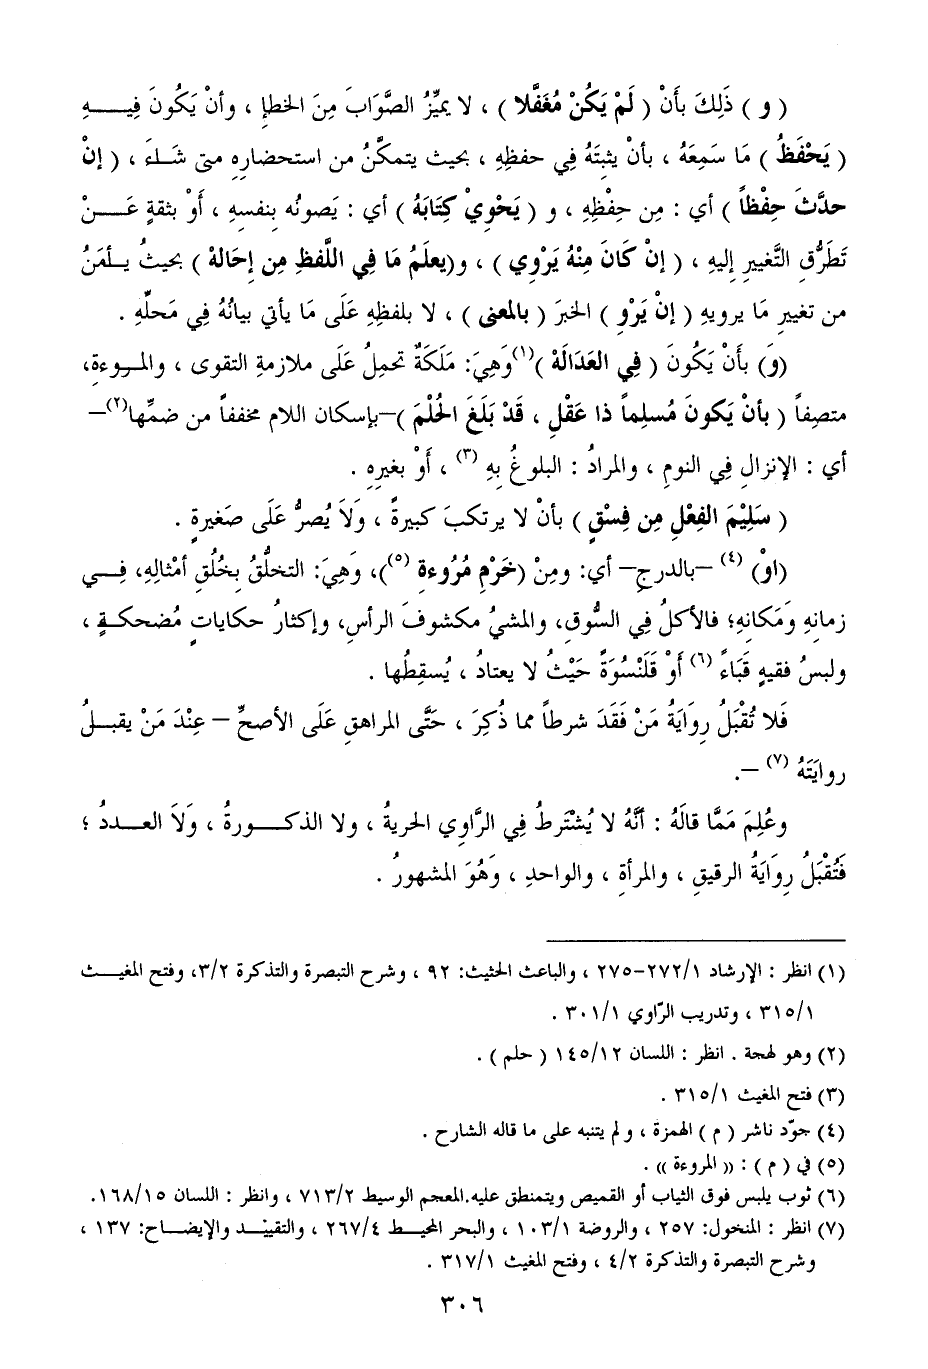 ( و ) ذَلِكَ بأَنْ ( لَمْ يَكُنْ مُغَفَّلا ) ، لا يميِّزُ الصَّوَابَ مِنَ الخطإ ، وأنْ يَكُونَ فِيهِ
( يَحْفَظُ ) مَا سَمِعَهُ ، بأنْ يثبتَهُ فِي حفظِهِ ، بحيث يتمكَّنُ من استحضارِهِ متى شَاءَ ، ( إنْ
حدَّثَ حِفْظاً ) أي : مِن حِفْظِهِ ، و ( يَحْوِيْ كِتَابَهُ ) أي : يَصونُه بِنفسِهِ ، أَوْ بثقةٍ عَنْ
تَطَرُّقِ التَّغييرِ إليهِ ، ( إنْ كَانَ مِنْهُ يَرْوِي ) ، و(يعلَمُ مَا فِي اللَّفظِ مِن إحَالهْ ) بحيثُ يأمَنُ
من تغييرِ مَا يرويهِ ( إنْ يَرْوِ ) الخبرَ ( بالمعنى ) ، لا بلفظِهِ عَلَى مَا يأتي بيانُهُ فِي مَحلِّهِ .
(وَ) بأَنْ يَكُونَ ( فِي العَدَالَهْ )(١)وَهِيَ: مَلَكَةٌ تحمِلُ عَلَى ملازمةِ التقوى ، والمروءةِ،
متصِفاً ( بأنْ يَكونَ مُسلِماً ذا عَقْلِ ، قَدْ بَلَغَ الحُلْمَ )–بإسكان اللام مخففاً من ضمِّها(٢)–
أي : الإنزالِ فِي النومِ ، والمرادُ : البلوغُ بِهِ (٣) ، أَوْ بغيرِهِ .
( سَلِيْمَ الفِعْلِ مِن فِسْقٍ ) بأنْ لا يرتكبَ كبيرةً ، وَلاَ يُصرُّ عَلَى صَغيرةٍ .
(اوْ) (٤) –بالدرجِ– أي: ومِنْ (خَرْمِ مُرُوءةِ (٥))، وَهِيَ: التخلُّقُ بِخُلُقِ أمْثالِهِ، فِي
زمانِهِ وَمَكانِهِ؛ فالأكلُ فِي السُّوقِ، والمشيُ مكشوفَ الرأسِ، وإكثارُ حكاياتٍ مُضحكةٍ ،
ولبسُ فقيهٍ قَبَاءً (٦) أَوْ قَلَنْسُوَةً حَيْثُ لا يعتادُ ، يُسقطُها .
فَلا تُقْبَلُ رِوَايَةُ مَنْ فَقَدَ شرطاً مما ذُكِرَ ، حَتَّى المراهقِ عَلَى الأصحِّ – عِنْدَ مَنْ يقبلُ
روايَتَهُ (٧) –.
وعُلِمَ مَمَّا قالَهُ : أنَّهُ لا يُشْتَرطُ فِي الرَّاوِي الحريةُ ، ولا الذكورةُ ، وَلاَ العددُ ؛
فَتُقْبَلُ رِوَايَةُ الرقيقِ ، والمرأةِ ، والواحدِ ، وَهُوَ المشهورُ .
(١) انظر : الإرشاد ٢٧٢/١–٢٧٥ ، والباعث الحثيث: ٩٢ ، وشرح التبصرة والتذكرة ٣/٢، وفتح المغيث
٣١٥/١ ، وتدريب الرّاوي ٣٠١/١ .
(٢) وهو لهجة . انظر : اللسان ١٤٥/١٢ ( حلم ) .
(٣) فتح المغيث ٣١٥/١ .
(٤) جوّد ناشر ( م ) الهمزة ، و لم يتنبه على ما قاله الشارح .
(٥) في ( م ) : (( المروءة )) .
(٦) ثوب يلبس فوق الثياب أو القميص ويتمنطق عليه.المعجم الوسيط ٧١٣/٢ ، وانظر : اللسان ١٦٨/١٥.
(٧) انظر : المنخول: ٢٥٧ ، والروضة ١٠٣/١ ، والبحر المحيط ٢٦٧/٤ ، والتقييد والإيضاح: ١٣٧ ،
وشرح التبصرة والتذكرة ٤/٢ ، وفتح المغيث ٣١٧/١ .
٣٠٦